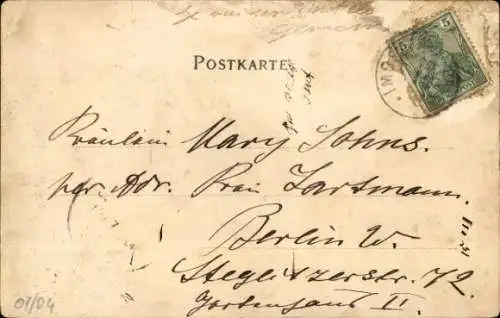 POSTKARTE
5 5
IMG
Fräulein Mary Sohns.
per. Adr. Frau Zartmann.
Berlin W.
Steglitzerstr. 72.
Gartenhaus II.
01/04